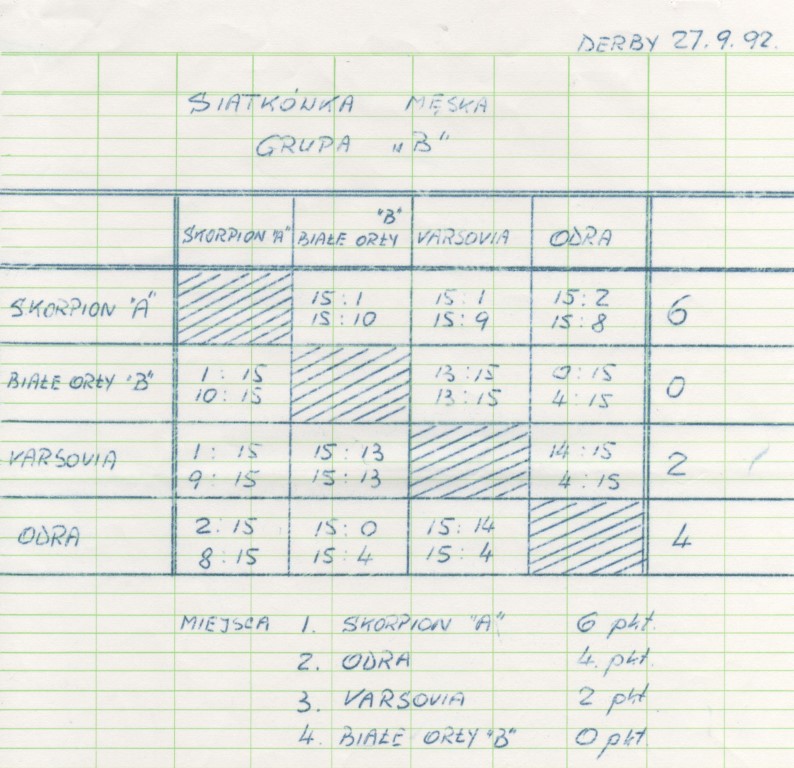 DERBY 27.9.92.
SIATKÓWKA MĘSKA
GRUPA „B"
SKORPION "A" BIAŁE ORŁY "B" VARSOVIA ODRA
SKORPION "A" 15:1 15:1 15:2 6
15:10 15:9 15:8
BIAŁE ORŁY "B" 1:15 13:15 0:15 0
10:15 13:15 4:15
VARSOVIA 1:15 15:13 14:15 2
9:15 15:13 4:15
ODRA 2:15 15:0 15:14 4
8:15 15:4 15:4
MIEJSCA 1. SKORPION "A" 6 pkt.
2. ODRA 4. pkt.
3. VARSOVIA 2 pkt
4. BIAŁE ORŁY "B" 0 pkt.